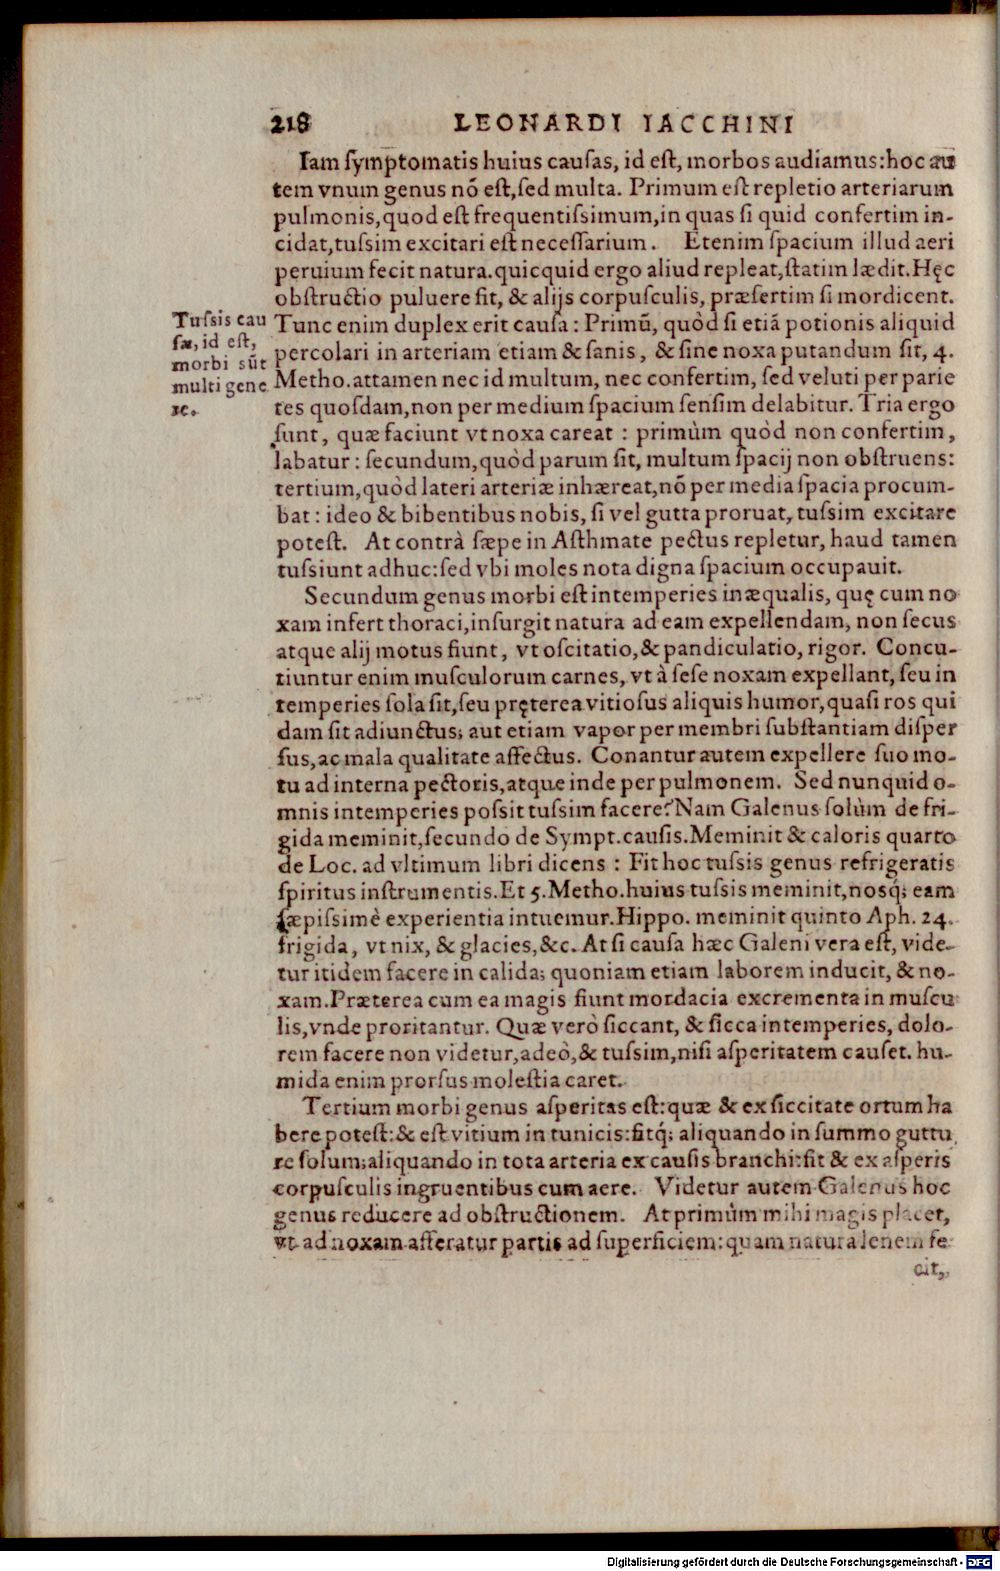 218 LEONARDI IACCHINI
Iam ſymptomatis huius cauſas, id eſt, morbos audiamus: hoc au
tem vnum genus nõ eſt, ſed multa. Primum eſt repletio arteriarum
pulmonis, quod eſt frequentiſsimum, in quas ſi quid confertim in-
cidat, tuſsim excitari eſt neceſſarium. Etenim ſpacium illud aeri
peruium fecit natura. quicquid ergo aliud repleat, ſtatim lædit. Hęc
obſtructio puluere fit, & alijs corpuſculis, præſertim ſi mordicent.
Tuſsis cau
ſæ, id eſt,
morbi sũt
multi gene
re.
Tunc enim duplex erit cauſa: Primũ, quòd ſi etiã potionis aliquid
percolari in arteriam etiam & ſanis, & ſine noxa putandum ſit, 4.
Metho. attamen nec id multum, nec confertim, ſed veluti per parie
tes quoſdam, non per medium ſpacium ſenſim delabitur. Tria ergo
ſunt, quæ faciunt vt noxa careat: primùm quòd non confertim,
labatur: ſecundum, quòd parum ſit, multum ſpacij non obſtruens:
tertium, quòd lateri arteriæ inhæreat, nõ per media ſpacia procum-
bat: ideo & bibentibus nobis, ſi vel gutta proruat, tuſsim excitare
poteſt. At contrà ſæpe in Aſthmate pectus repletur, haud tamen
tuſsiunt adhuc: ſed vbi moles nota digna ſpacium occupauit.
Secundum genus morbi eſt intemperies inæqualis, quę cum no
xam infert thoraci, inſurgit natura ad eam expellendam, non ſecus
atque alij motus fiunt, vt oſcitatio, & pandiculatio, rigor. Concu-
tiuntur enim muſculorum carnes, vt à ſeſe noxam expellant, ſeu in
temperies ſola ſit, ſeu pręterea vitioſus aliquis humor, quaſi ros qui
dam ſit adiunctus; aut etiam vapor per membri ſubſtantiam diſper
ſus, ac mala qualitate affectus. Conantur autem expellere ſuo mo-
tu ad interna pectoris, atque inde per pulmonem. Sed nunquid o-
mnis intemperies poſsit tuſsim facere? Nam Galenus ſolùm de fri-
gida meminit, ſecundo de Sympt. cauſis. Meminit & caloris quarto
de Loc. ad vltimum libri dicens: Fit hoc tuſsis genus refrigeratis
ſpiritus inſtrumentis. Et 5. Metho. huius tuſsis meminit, nosq́; eam
ſæpiſsimè experientia intuemur. Hippo. meminit quinto Aph. 24.
frigida, vt nix, & glacies, &c. At ſi cauſa hæc Galeni vera eſt, vide-
tur itidem facere in calida; quoniam etiam laborem inducit, & no-
xam. Præterea cum ea magis fiunt mordacia excrementa in muſcu
lis, vnde proritantur. Quæ verò ſiccant, & ſicca intemperies, dolo-
rem facere non videtur, adeò, & tuſsim, niſi aſperitatem cauſet. hu-
mida enim prorſus moleſtia caret.
Tertium morbi genus aſperitas eſt: quæ & ex ſiccitate ortum ha
bere poteſt: & eſt vitium in tunicis: fitq́; aliquando in ſummo guttu
re ſolum; aliquando in tota arteria ex cauſis branchi: fit & ex aſperis
corpuſculis ingruentibus cum aere. Videtur autem Galenus hoc
genus reducere ad obſtructionem. At primùm mihi magis placet,
vt ad noxam afferatur partis ad ſuperficiem: quam natura lenem fe
cit,
Digitalisierung gefördert durch die Deutsche Forschungsgemeinschaft - DFG